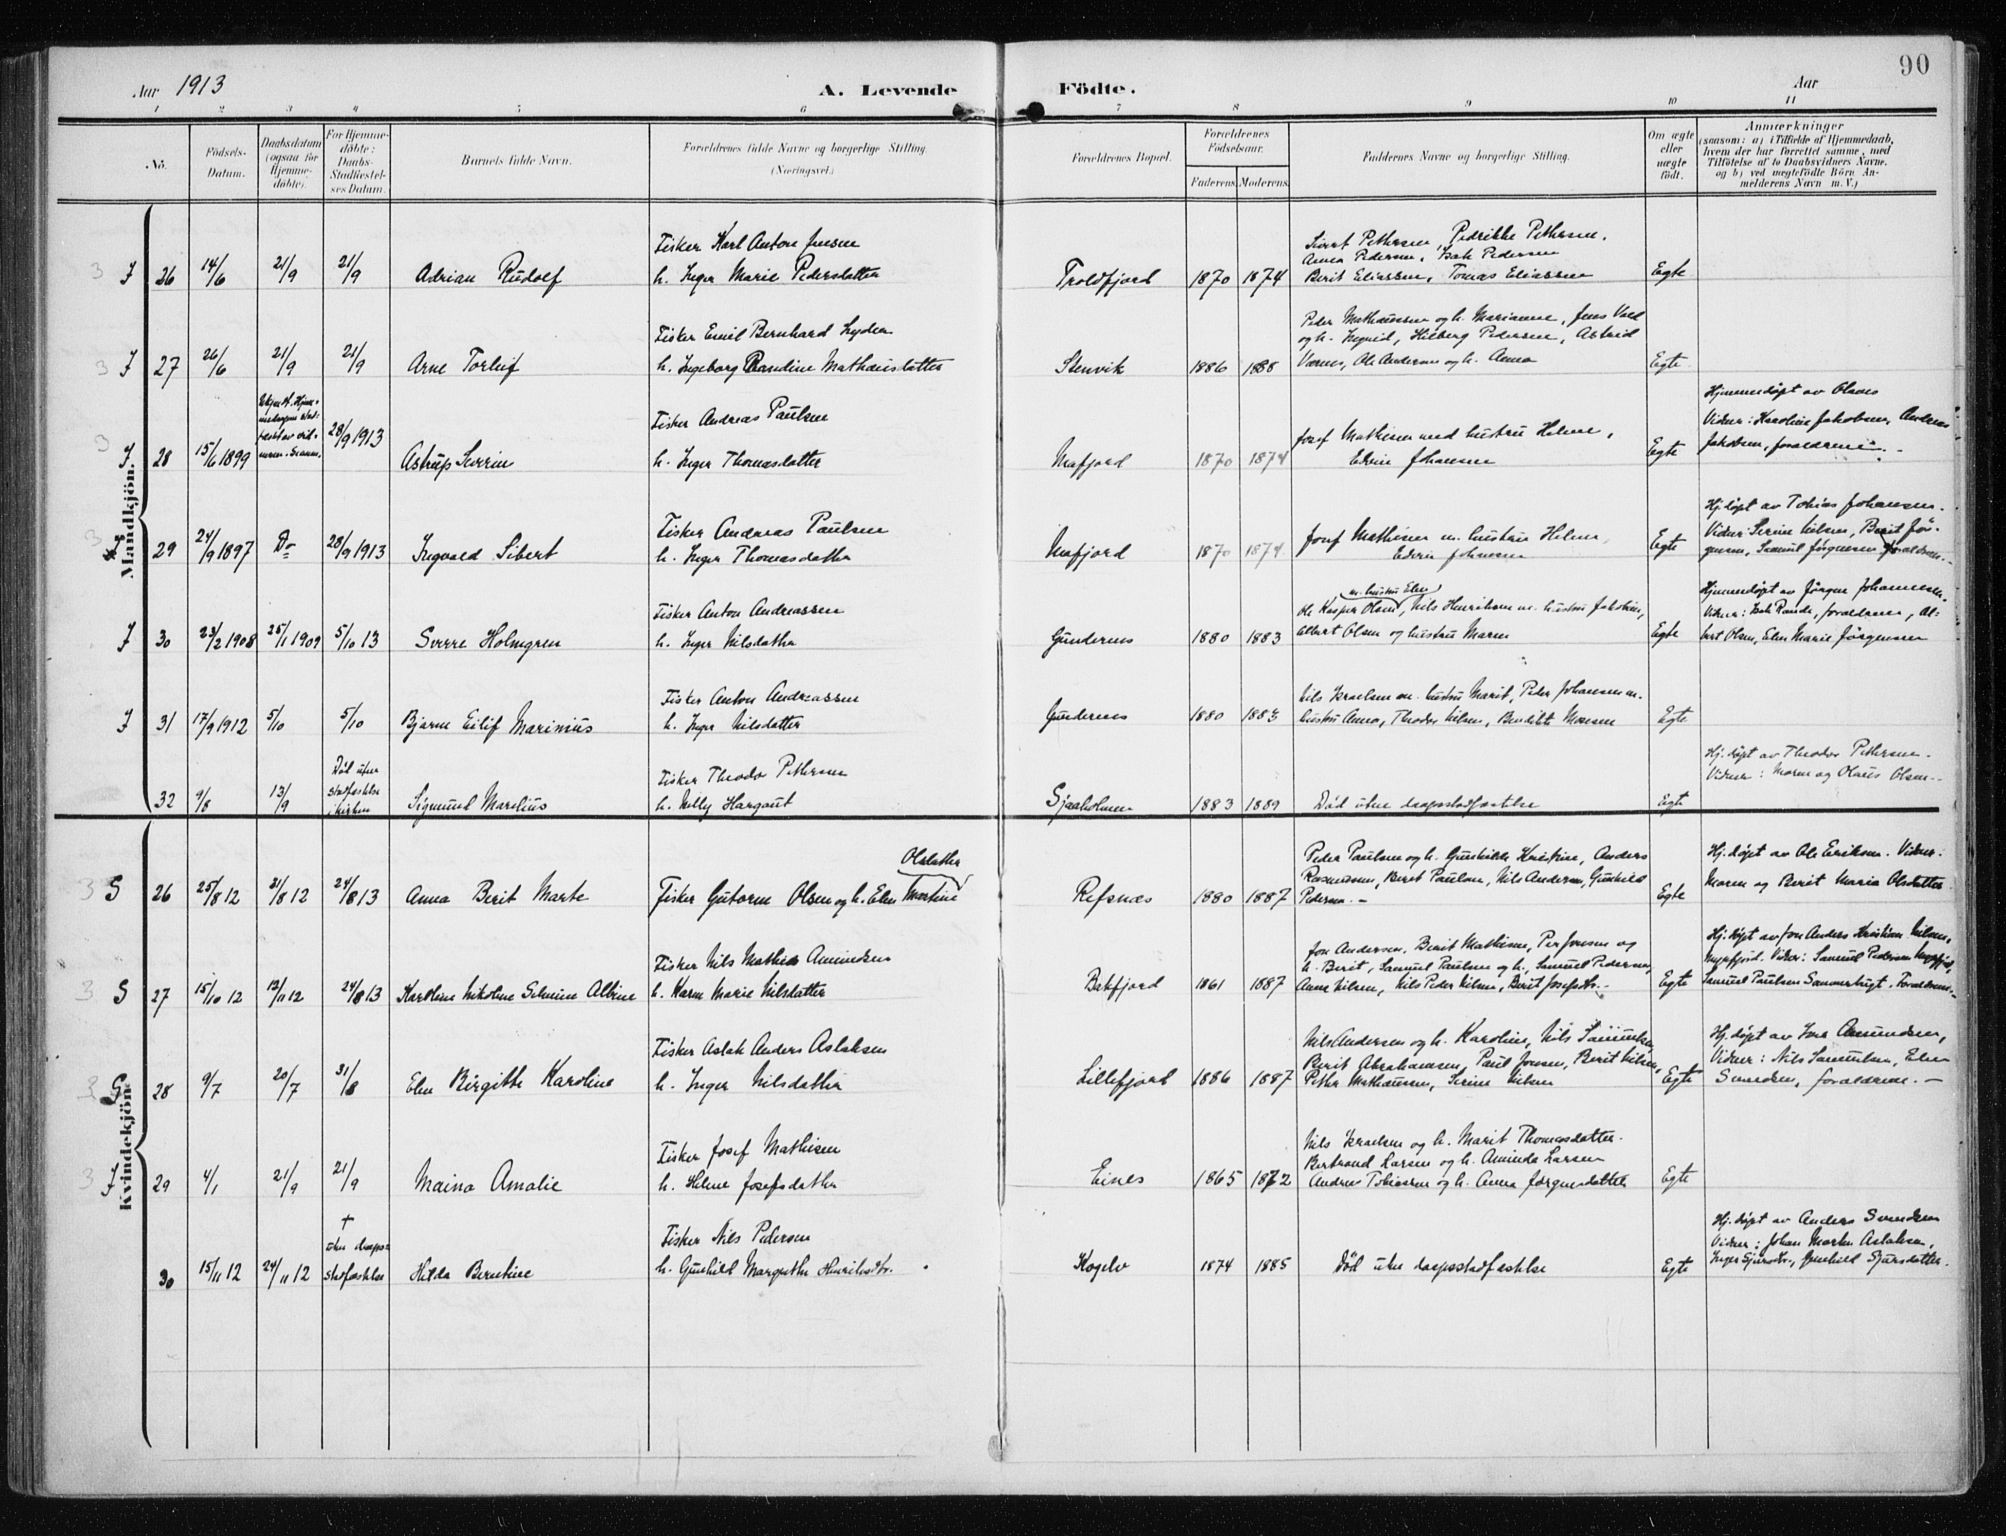 90
Aar 1913
A. Levende Födte.
Aar
1 2 3 4 5 6 7 8 9 10 11
No.
Födsels-Datum.
Daabsdatum (ogsaa for Hjemme-döbte).
For Hjemme-döbte: Daabs-Stadfæstel-ses Datum.
Barnets fulde Navn.
Forældrenes fulde Navne og borgerlige Stilling. (Næringsvei.)
Forældrenes Bopæl.
Forældrenes Födselsaar.
Faderens. Moderens.
Faddernes Navne og borgerlige Stilling.
Om ægte eller uægte födt.
Anmærkninger
(saasom: a) i Tilfælde af Hjemmedaab, hvem der har forrettet samme, med Tilföielse af to Daabsvidners Navne, og b) ved uægtefödte Börn Anmelderens Navn m. V.)
Mandkjön.
3 J 26 14/6 21/9 21/9 Adrian Rudolf
Fisker Karl Anton Jensen
h. Inger Marie Pedersdatter
Troldfjord 1870 1874
Sivert Pettersen, Pedrikke Pettersen,
Anna Pedersen, Isak Pedersen
Berit Eliassen, Tomas Eliassen
Egte
3 J 27 26/6 21/9 21/9 Arne Torleif
Fisker Emil Bernhard Lyder
h. Ingeborg Randine Mathæusdatter
Stenvik 1886 1888
Peder Mathæussen og h. Marianne, Jens
og h. Ingrid, Hilberg Pedersen, Astrid
Værnes, Ole Andersen og h. Anna
Egte
3 J 28 15/6 1899
28/9 1913 Astrup Severin
Fisker Andreas Paulsen
h. Inger Thomasdatter
Mafjord 1870 1874
Josef Mathisen med hustru Helene,
Edvin Johansen
Egte
Hjemmedøpt av Olaves
Vidner: Karoline Jakobsen, Andreas
Jakobsen, forældrene.
3 J 29 24/9 1897 Do 28/9 1913 Ingvald Sibert
Fisker Andreas Paulsen
h. Inger Thomasdatter
Mafjord 1870 1874
Josef Mathisen m. hustru Helene,
Edvin Johansen
Egte
Hj. døpt av Tobias Johansen.
Vidner Serine Nilsen, Berit Jør-
gensen, Samuel Jørgensen forældrene.
J 30 23/2 1908 25/1 1909 5/10 13 Sverre Holmgren
Fisker Anton Andreassen
h. Inger Nilsdatter
Gundernes 1880 1883
m. hustru Elen
Ole Kasper Olsen, Nils Henriksen m. hustru Jakobine,
Albert Olsen og hustru Maren
Egte
Hjemmedøpt av Jørgen Johannesen.
Vidner: Isak Rande, forældrene, Al-
bert Olsen, Elen Marie Jørgensen
J 31 17/9 1912 5/10 5/10 Bjarne Eilif Marinius
Fisker Anton Andreassen
h. Inger Nilsdatter
Gundernes 1880 1883
Nils Israelsen m. hustru Marit, Peder Johansen m.
hustru Anna, Theodor Nilsen, Bendikte Monsen
Egte
32 9/8 13/9
Død uten
stadfæstelse
i kirken
Sigmund Marelius
Fisker Theodor Pettersen
h. Nilly Hargaut
Sjaaholmen 1883 1889
Død uten daapsstadfæstelse
Egte
Hj. døpt av Theodor Pettersen.
Vidner: Maren og Olaus Olsen.
Kvindekjön.
3 S 26 25/8 12 21/8 12 24/8 13 Anna Berit Marte
Olsdatter
Fisker Gutorm Olsen og h. Elen Martine
Refsnæs 1880 1887
Peder Paulsen og h. Gunhilde Kristine, Anders
Rasmussen, Berit Paulsen, Nils Andersen, Gunhild
Pedersen.
Egte
Hj. døpt av Ole Eriksen. Vidner:
Maren og Berit Maria Olsdatter
3 S 27 15/10 12 12/11 12 24/8 13 Karoline Nikoline Selmine Albine
Fisker Nils Mathis Amundsen
h. Karen Marie Nilsdatter
Bakfjord 1861 1887
Jon Andersen, Berit Mathisen, Per Jonsen og
h. Berit, Samuel Paulsen og h., Samuel Pedersen,
Anne Nilsen, Nils Peder Nilsen, Berit Josefsdtr.
Egte
Hj. døpt av Jon Anders Kristian Nilsen,
Myrfjord. Vidner: Samuel Pedersen Myrfjord,
Samuel Paulsen Sommerbugt. Forældrene.
3 S 28 9/7 20/7 31/8 Elen Birgitte Karoline
Fisker Aslak Anders Aslaksen
h. Inger Nilsdatter
Lillefjord 1886 1887
Nils Andersen og h. Karoline, Nils Samuelsen
Berit Abrahamsen, Paul Jonsen, Berit Nilsen,
Petter Mathæussen, Serine Nilsen
Egte
Hj. døpt av Amundsen,
Vidner: Nils Samuelsen, Elen
Svendsen, forældrene.
3 J 29 4/1 21/9 21/9 Maina Amalie
Fisker Josef Mathisen
h. Helene Josefsdatter
Eines 1865 1872
Nils Israelsen og h. Marit Thomasdatter
Bertrand Larsen og h. Aminda Larsen
Andreas Tobiassen og h. Anna Jørgensdatter
Egte
30 15/11 12 24/11 12
†
uten daaps-
stadfæstelse
Hilda Berntine
Fisker Nils Pedersen
h. Gunhild Margrethe Henriksdtr.
Kogelv 1874 1885
Død uten daapsstadfæstelse
Egte
Hj. døpt av Anders Svendsen
Vidner: Johan Morten Aslaksen,
Inger Sjursdtr., Gunhild Sjursdatter.
113